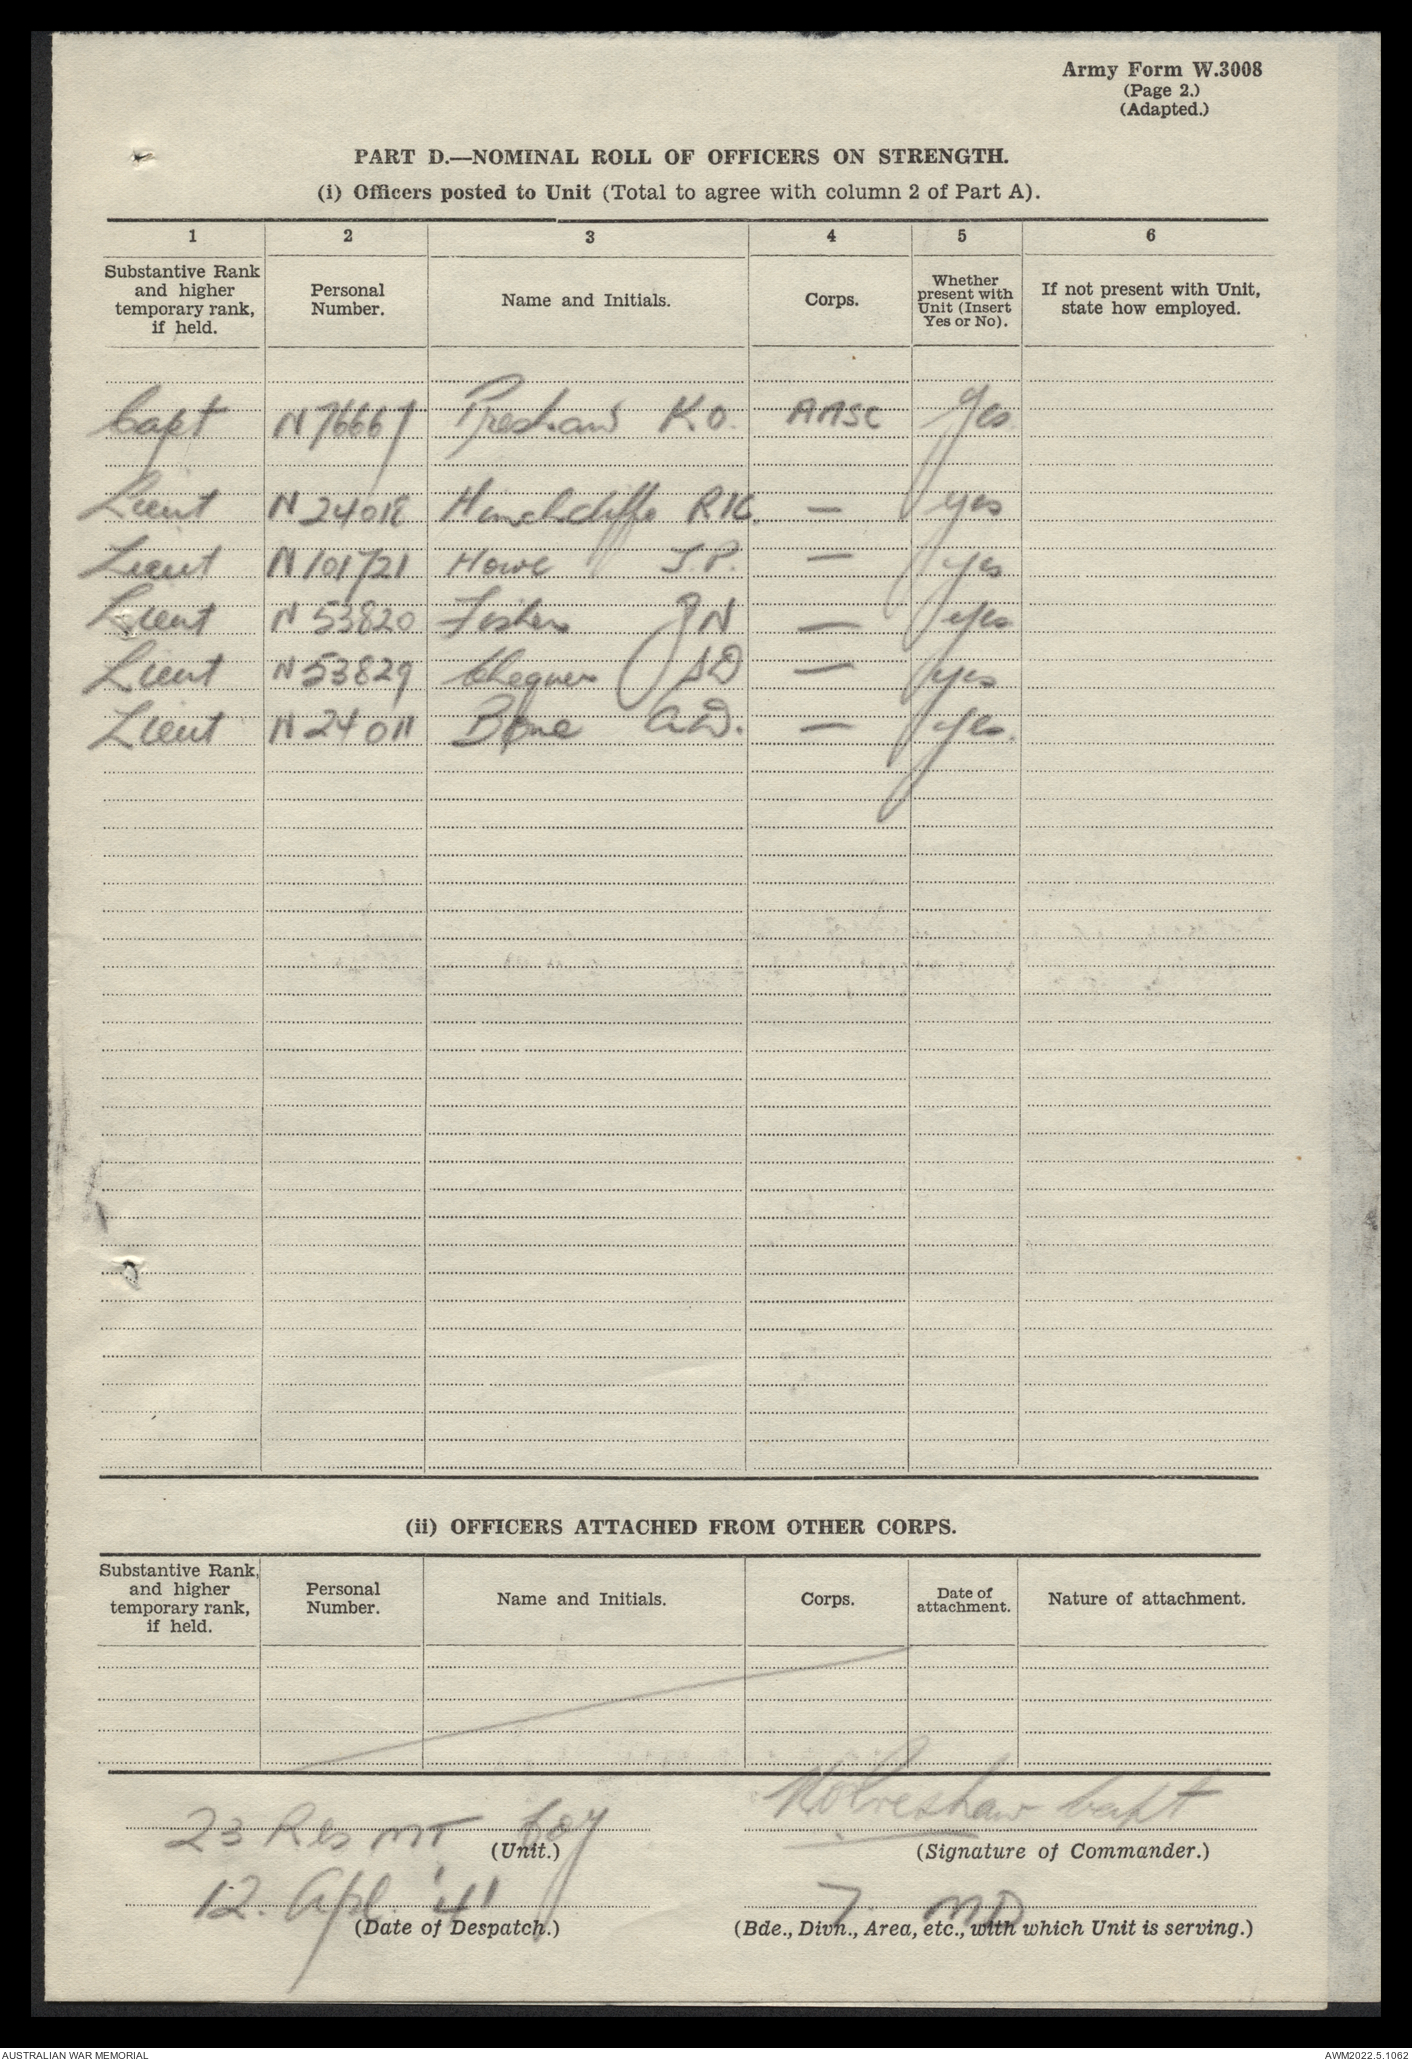 Army Form W.3008
(Page 2.)
(Adapted.)
PART D.—NOMINAL ROLL OF OFFICERS ON STRENGTH.
(i) Officers posted to Unit (Total to agree with column 2 of Part A).
1 2 3 4 5 6
Substantive Rank and higher temporary rank, if held. Personal Number. Name and Initials. Corps. Whether present with Unit (Insert Yes or No). If not present with Unit, state how employed.
Capt N76667 Preshaw K.O. AASC Yes
Lieut N24018 Hinchcliffe R.K. — yes
Lieut N101721 Howe J.P. — yes
Lieut N53820 Fisher JN — yes
Lieut N53829 Chequer SD — yes
Lieut N24011 Bone A.D. — yes.
(ii) OFFICERS ATTACHED FROM OTHER CORPS.
Substantive Rank, and higher temporary rank, if held. Personal Number. Name and Initials. Corps. Date of attachment. Nature of attachment.
23 Res MT Coy KOPreshaw Capt
(Unit.) (Signature of Commander.)
12. Apl. '41 7 MD
(Date of Despatch.) (Bde., Divn., Area, etc., with which Unit is serving.)
AUSTRALIAN WAR MEMORIAL AWM2022.5.1062